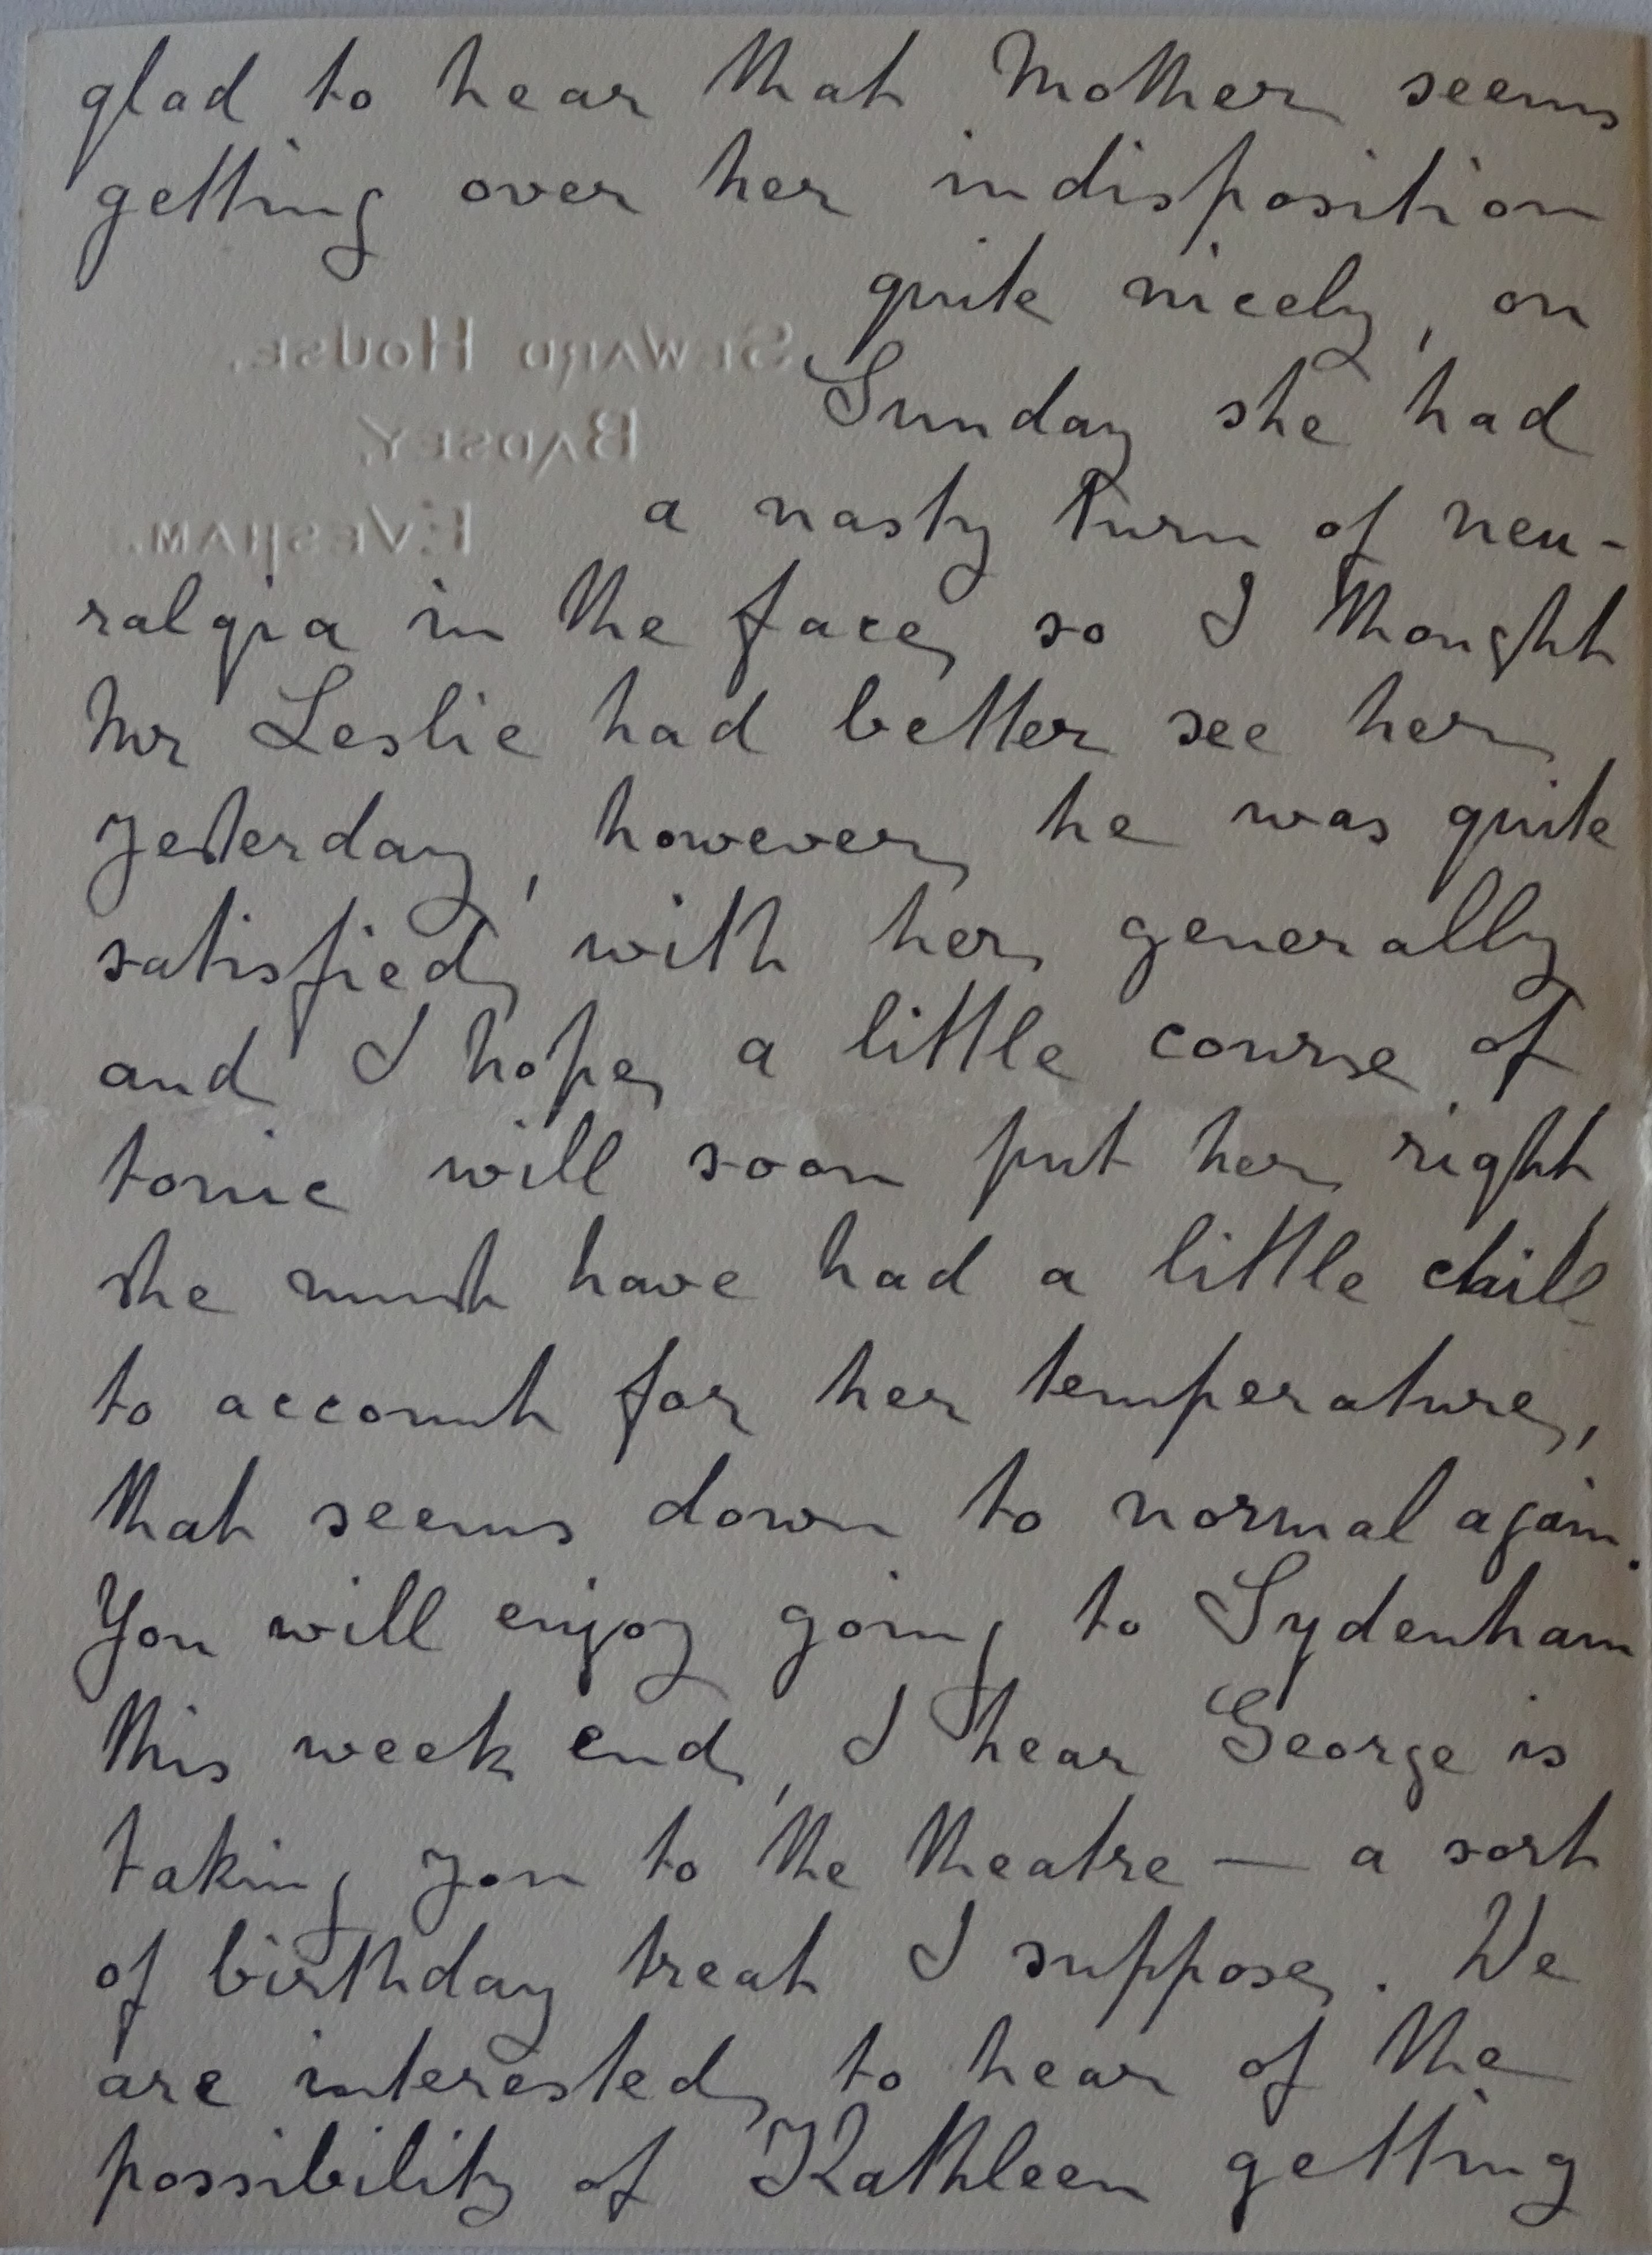 glad to hear that Mother seems
getting over her indisposition
quite nicely, on
Seward House.
Sunday she had
Badsey.
a nasty turn of neu-
Evesham.
ralgia in the face, so I thought
Mr Leslie had better see her
yesterday, however, he was quite
satisfied with her generally
and I hope a little course of
tonic will soon put her right,
she must have had a little chill
to account for her temperature,
that seems down to normal again.
You will enjoy going to Sydenham
this week end, I hear George is
taking you to the theatre — a sort
of birthday treat I suppose. We
are interested to hear of the
possibility of Kathleen getting